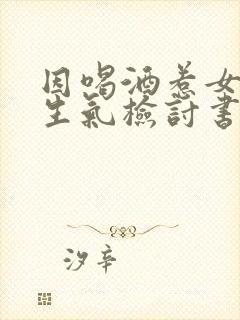 因喝酒惹女
生氣檢討書
汐辛